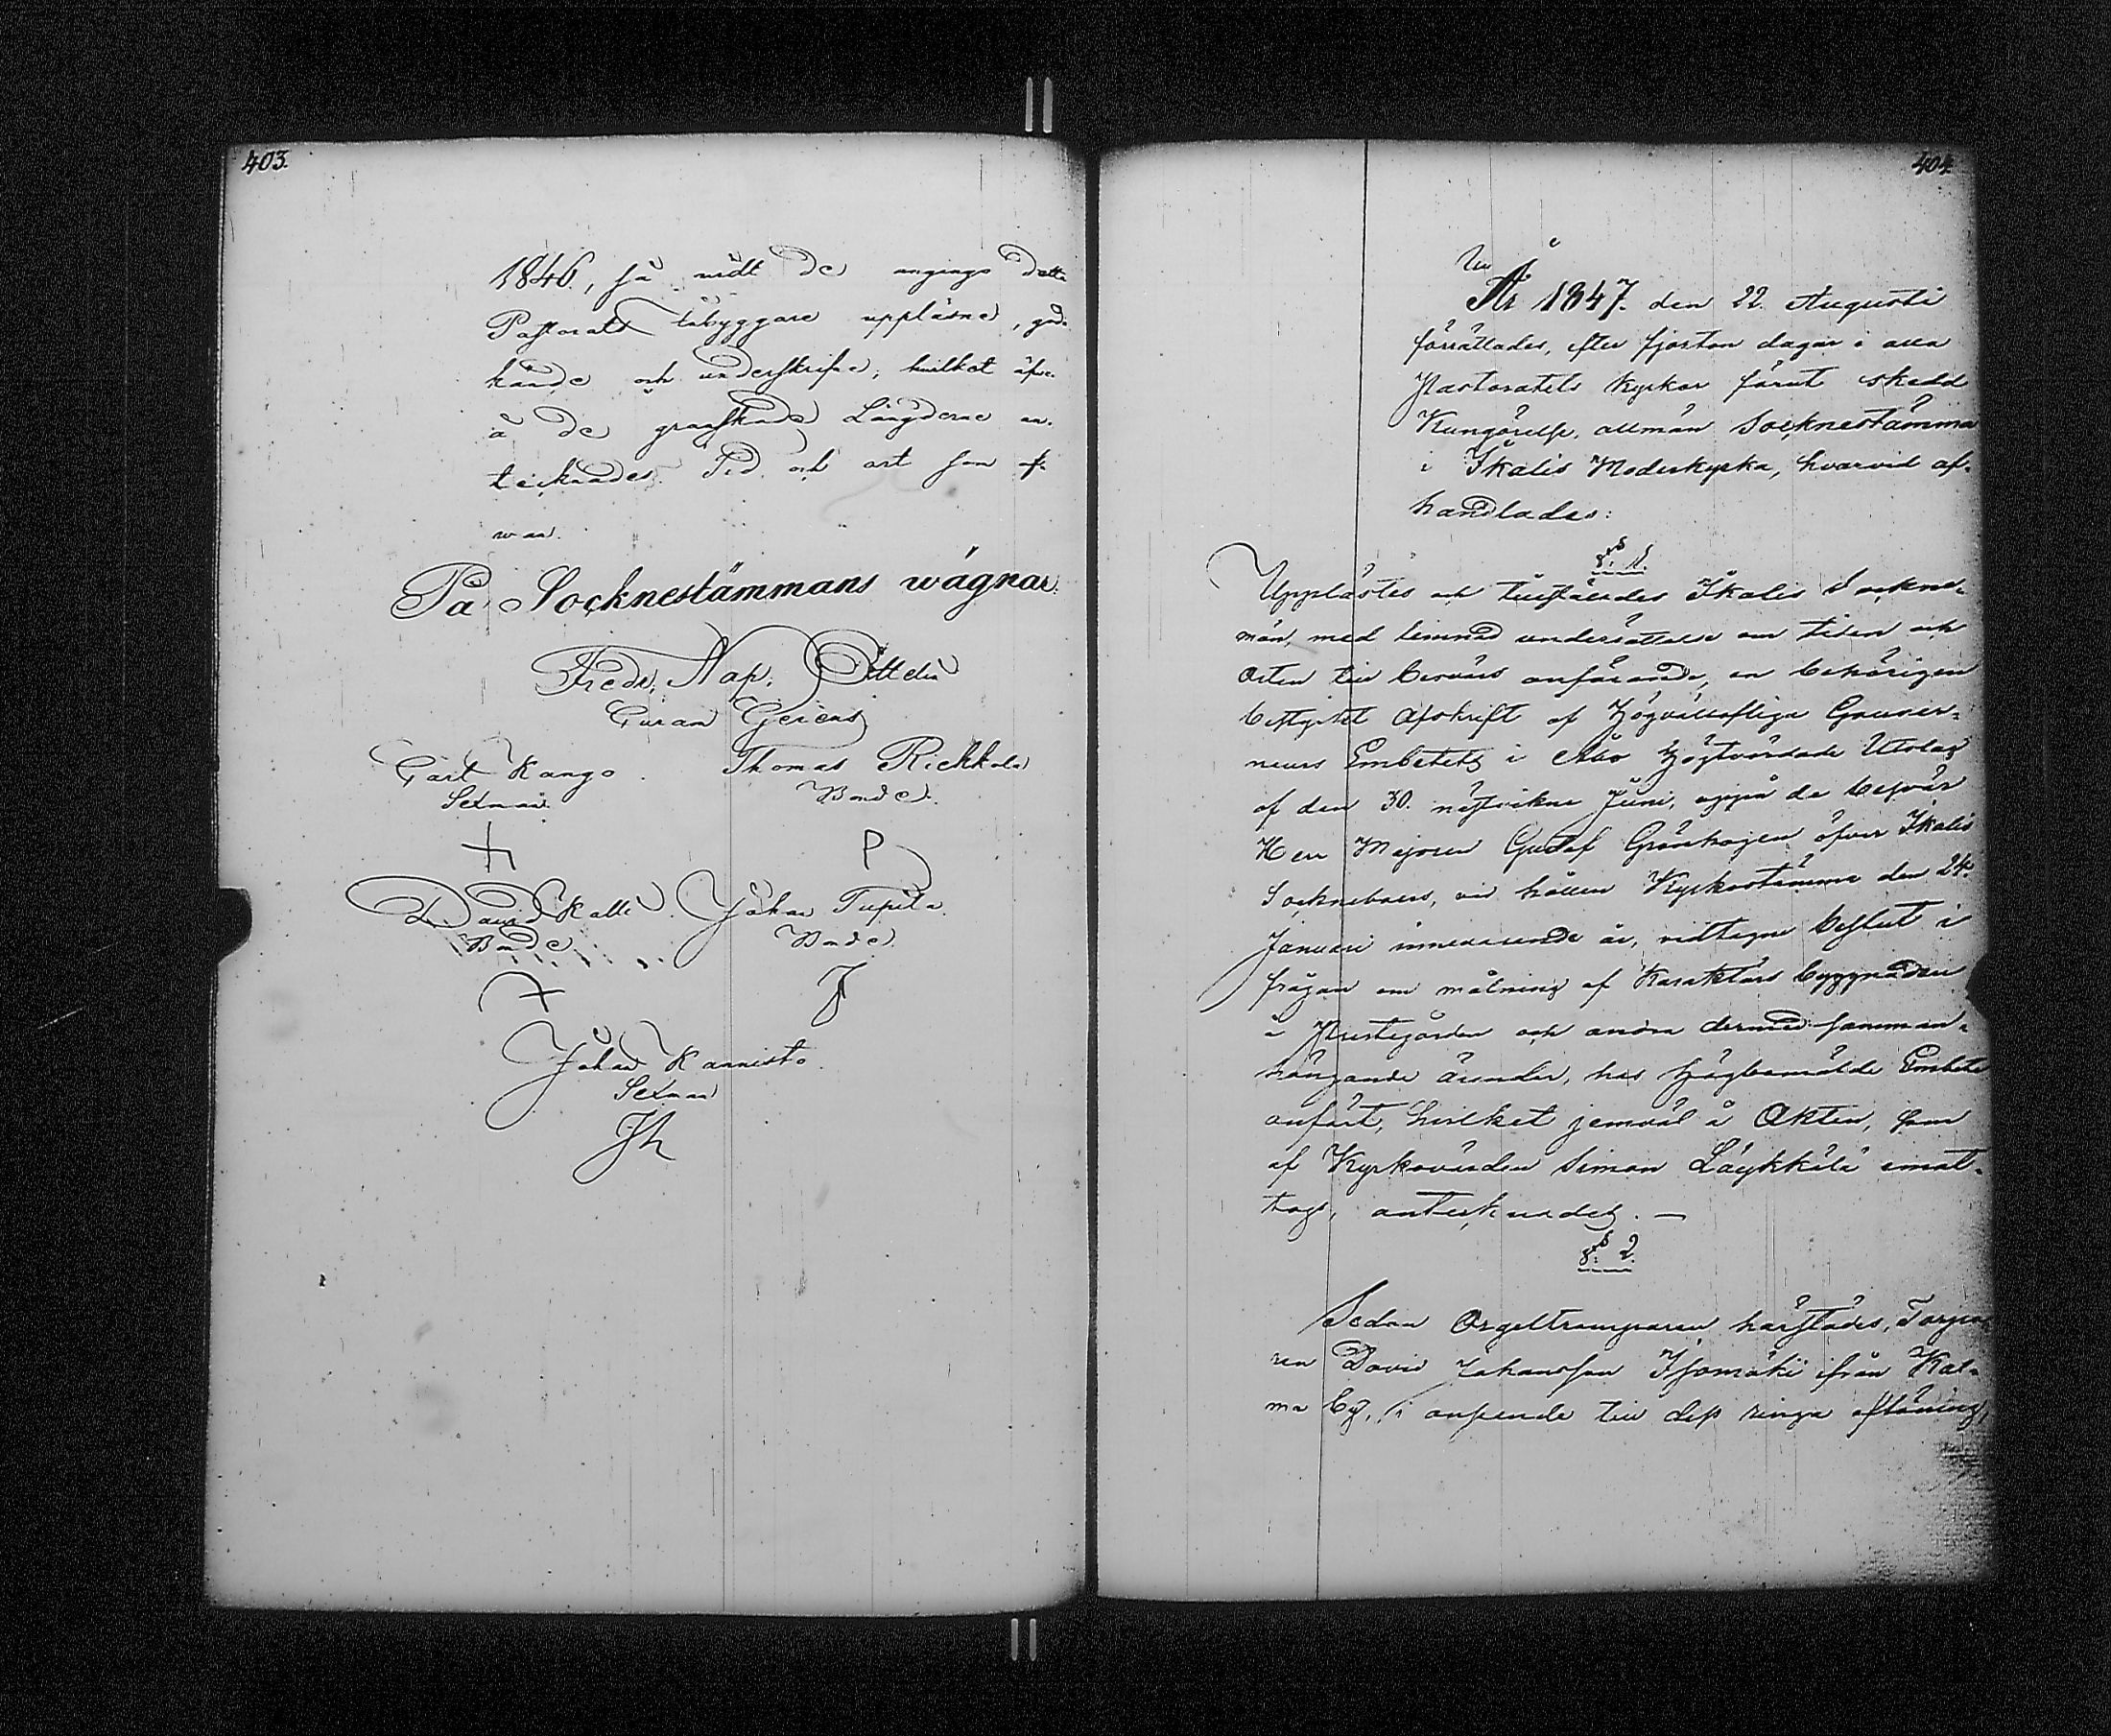 403.
1846., så vidt de angingo detta
Pastorats åbyggare upplästes, god-
kände och underskrifne, hvilket äfven
å de granskade Längderne an-
tecknades. Tid och ort som of-
wan.
På Socknestämmans wägnar:
Fredr. Nap.
Curam Gerens
Gart Kango. Thomas Riekkola
Sexman. Bonde.
David Kalli. Johan Tupila.
Bonde Bonde
Johan Kannisto.
Sexman
404
År 1847. den 22. Augusti
förrättades, efter fjorton dagar i alla
Pastoratets Kyrkor förut skedd
Kungörelse, allmän Socknestämma
i Ikalis Moderkyrka, hvarvid af-
handlades:
§. 1.
Upplästes och tillställdes Ikalis Sockne-
män, med lemnad underrättelse om tiden och
orten till besvärs anförande, en behörigen
bestyrkt Afskrift af Högvällofliga Guver-
neurs Embetets i Åbo Högtvördade Utslag
af den 30. nästvikne Juni, uppå de besvär
Herr Majoren Gustaf Grönhagen öfver Ikalis
Sockneboers, vid hållen Kyrkostämma den 24.
Januari innevarande år, vidtagne beslut i
frågan om målning af Karaktärs byggnaden
å Prestegården och andra dermed samman-
hängande ärender, hos Högbemälde Embete
anfört, hvilket jemväl å Akten, som
af Kyrkovärden Simon Läykkilä emot-
togs, antecknades. —
§. 2.
Sedan Orgeltramparen härstädes, Torpa-
ren David Johansson Isomäki ifrån Kal-
ma by, i anseende till dess ringa aflöning,